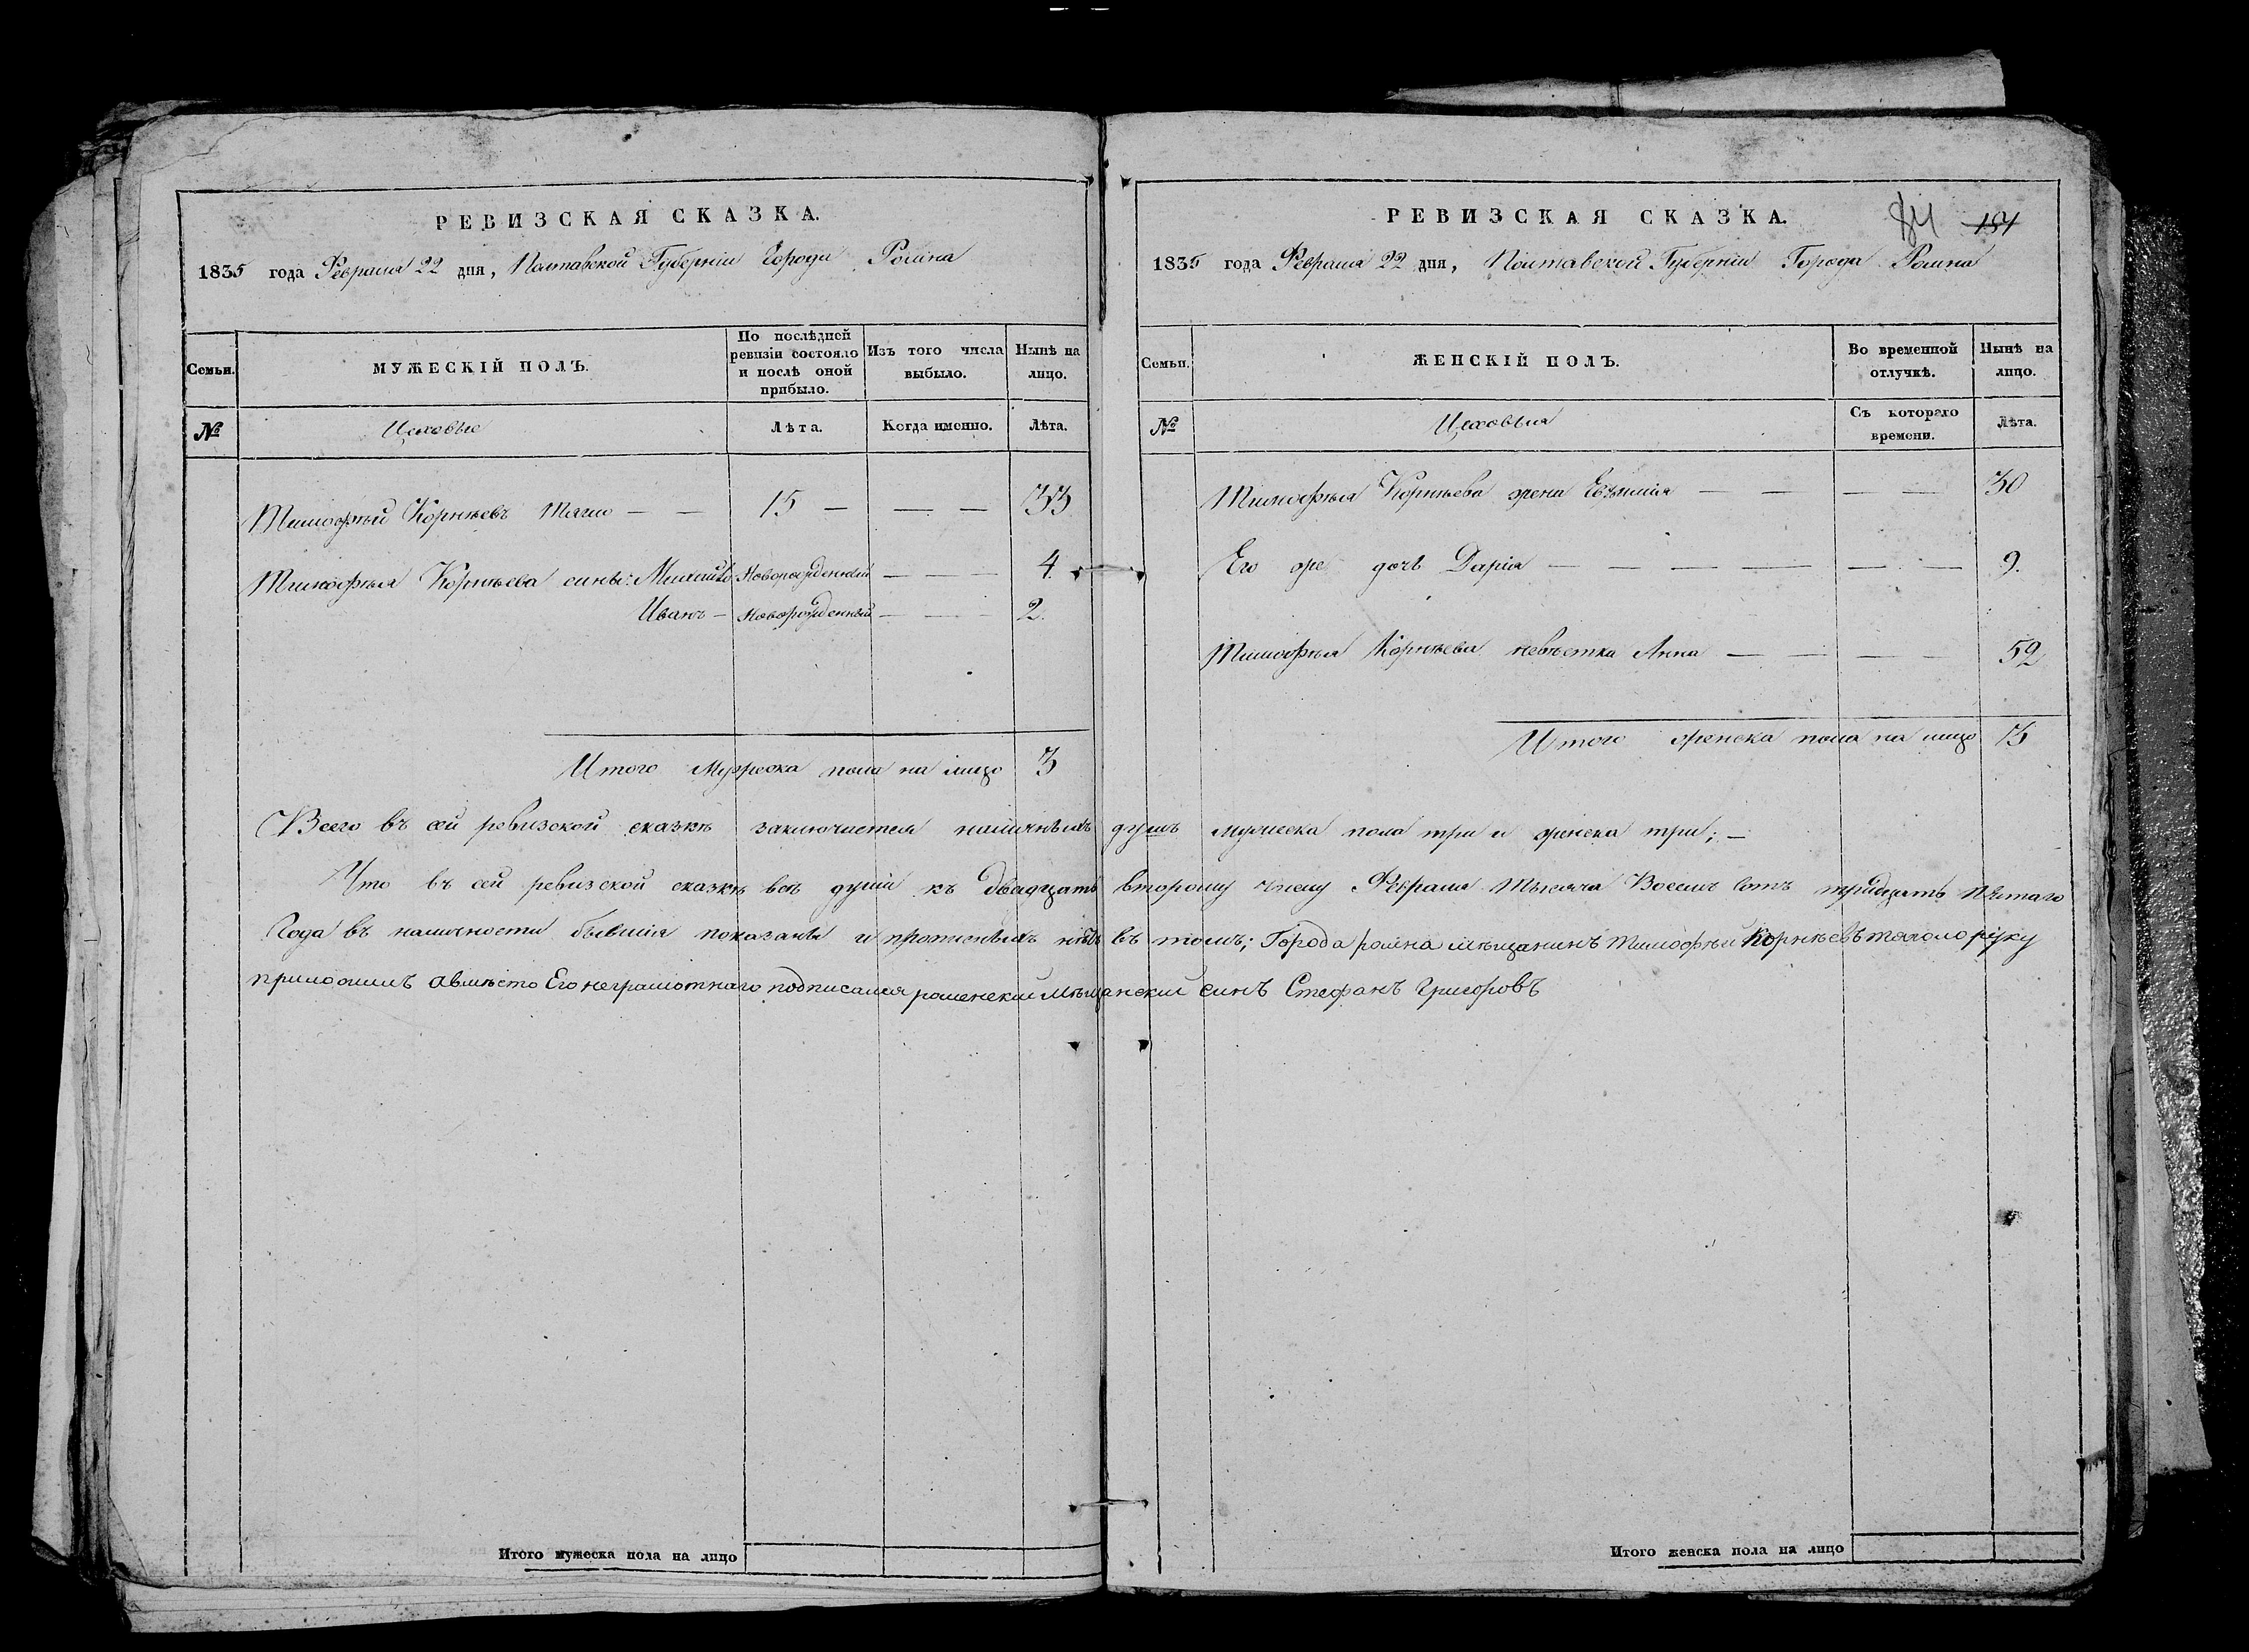 РЕВИЗСКАЯ СКАЗКА.
1835 года Февраля 22 дня, Полтавской Губерніи Города Ромна
Семьи.
МУЖЕСКІЙ ПОЛЪ.
По послѣдней ревизіи состояло и послѣ оной прибыло.
Изъ того числа выбыло.
Нынѣ на лицо.
№
Цеховые
Лѣта.
Когда именно.
Лѣта.
Тимофѣй Корнѣевъ Тягло — — 15 — — — 33
Тимофѣя Корнѣева сины: Михайло Новорожденный — — — 4.
Иванъ — Новорожденный — — — 2.
Итого Мужеска пола на лицо 3
РЕВИЗСКАЯ СКАЗКА.
84 184
1835 года Февраля 22 дня, Полтавской Губерніи Города Ромна
Семьи.
ЖЕНСКІЙ ПОЛЪ.
Во временной отлучкѣ.
Нынѣ на лицо.
№
Цеховыя
Съ котораго времени.
Лѣта.
Тимофѣя Корнѣева жена — — — — 30
Его же дочь Дарія — — — — — — — 9.
Тимофѣя Корнѣева невѣстка Анна — — — — 52
Итого женска пола на лицо 3
Всего въ сей ревизской сказкѣ заключается наличныхъ душъ мужеска пола три и женска три; —
Что въ сей ревизской сказкѣ всѣ души къ двадцать второму числу Февраля Тысяча Восемъ сотъ тридцать пятаго
Года въ наличности бывшія показаны и прописныхъ нѣтъ въ томъ; Города ромна мѣщанинъ тимофѣй Корнѣевъ тягло руку
приложилъ авмѣсто Его неграмотнаго подписался роменский Мѣщанский синъ Стефанъ Григоровъ
Итого мужеска пола на лицо
Итого женска пола на лицо